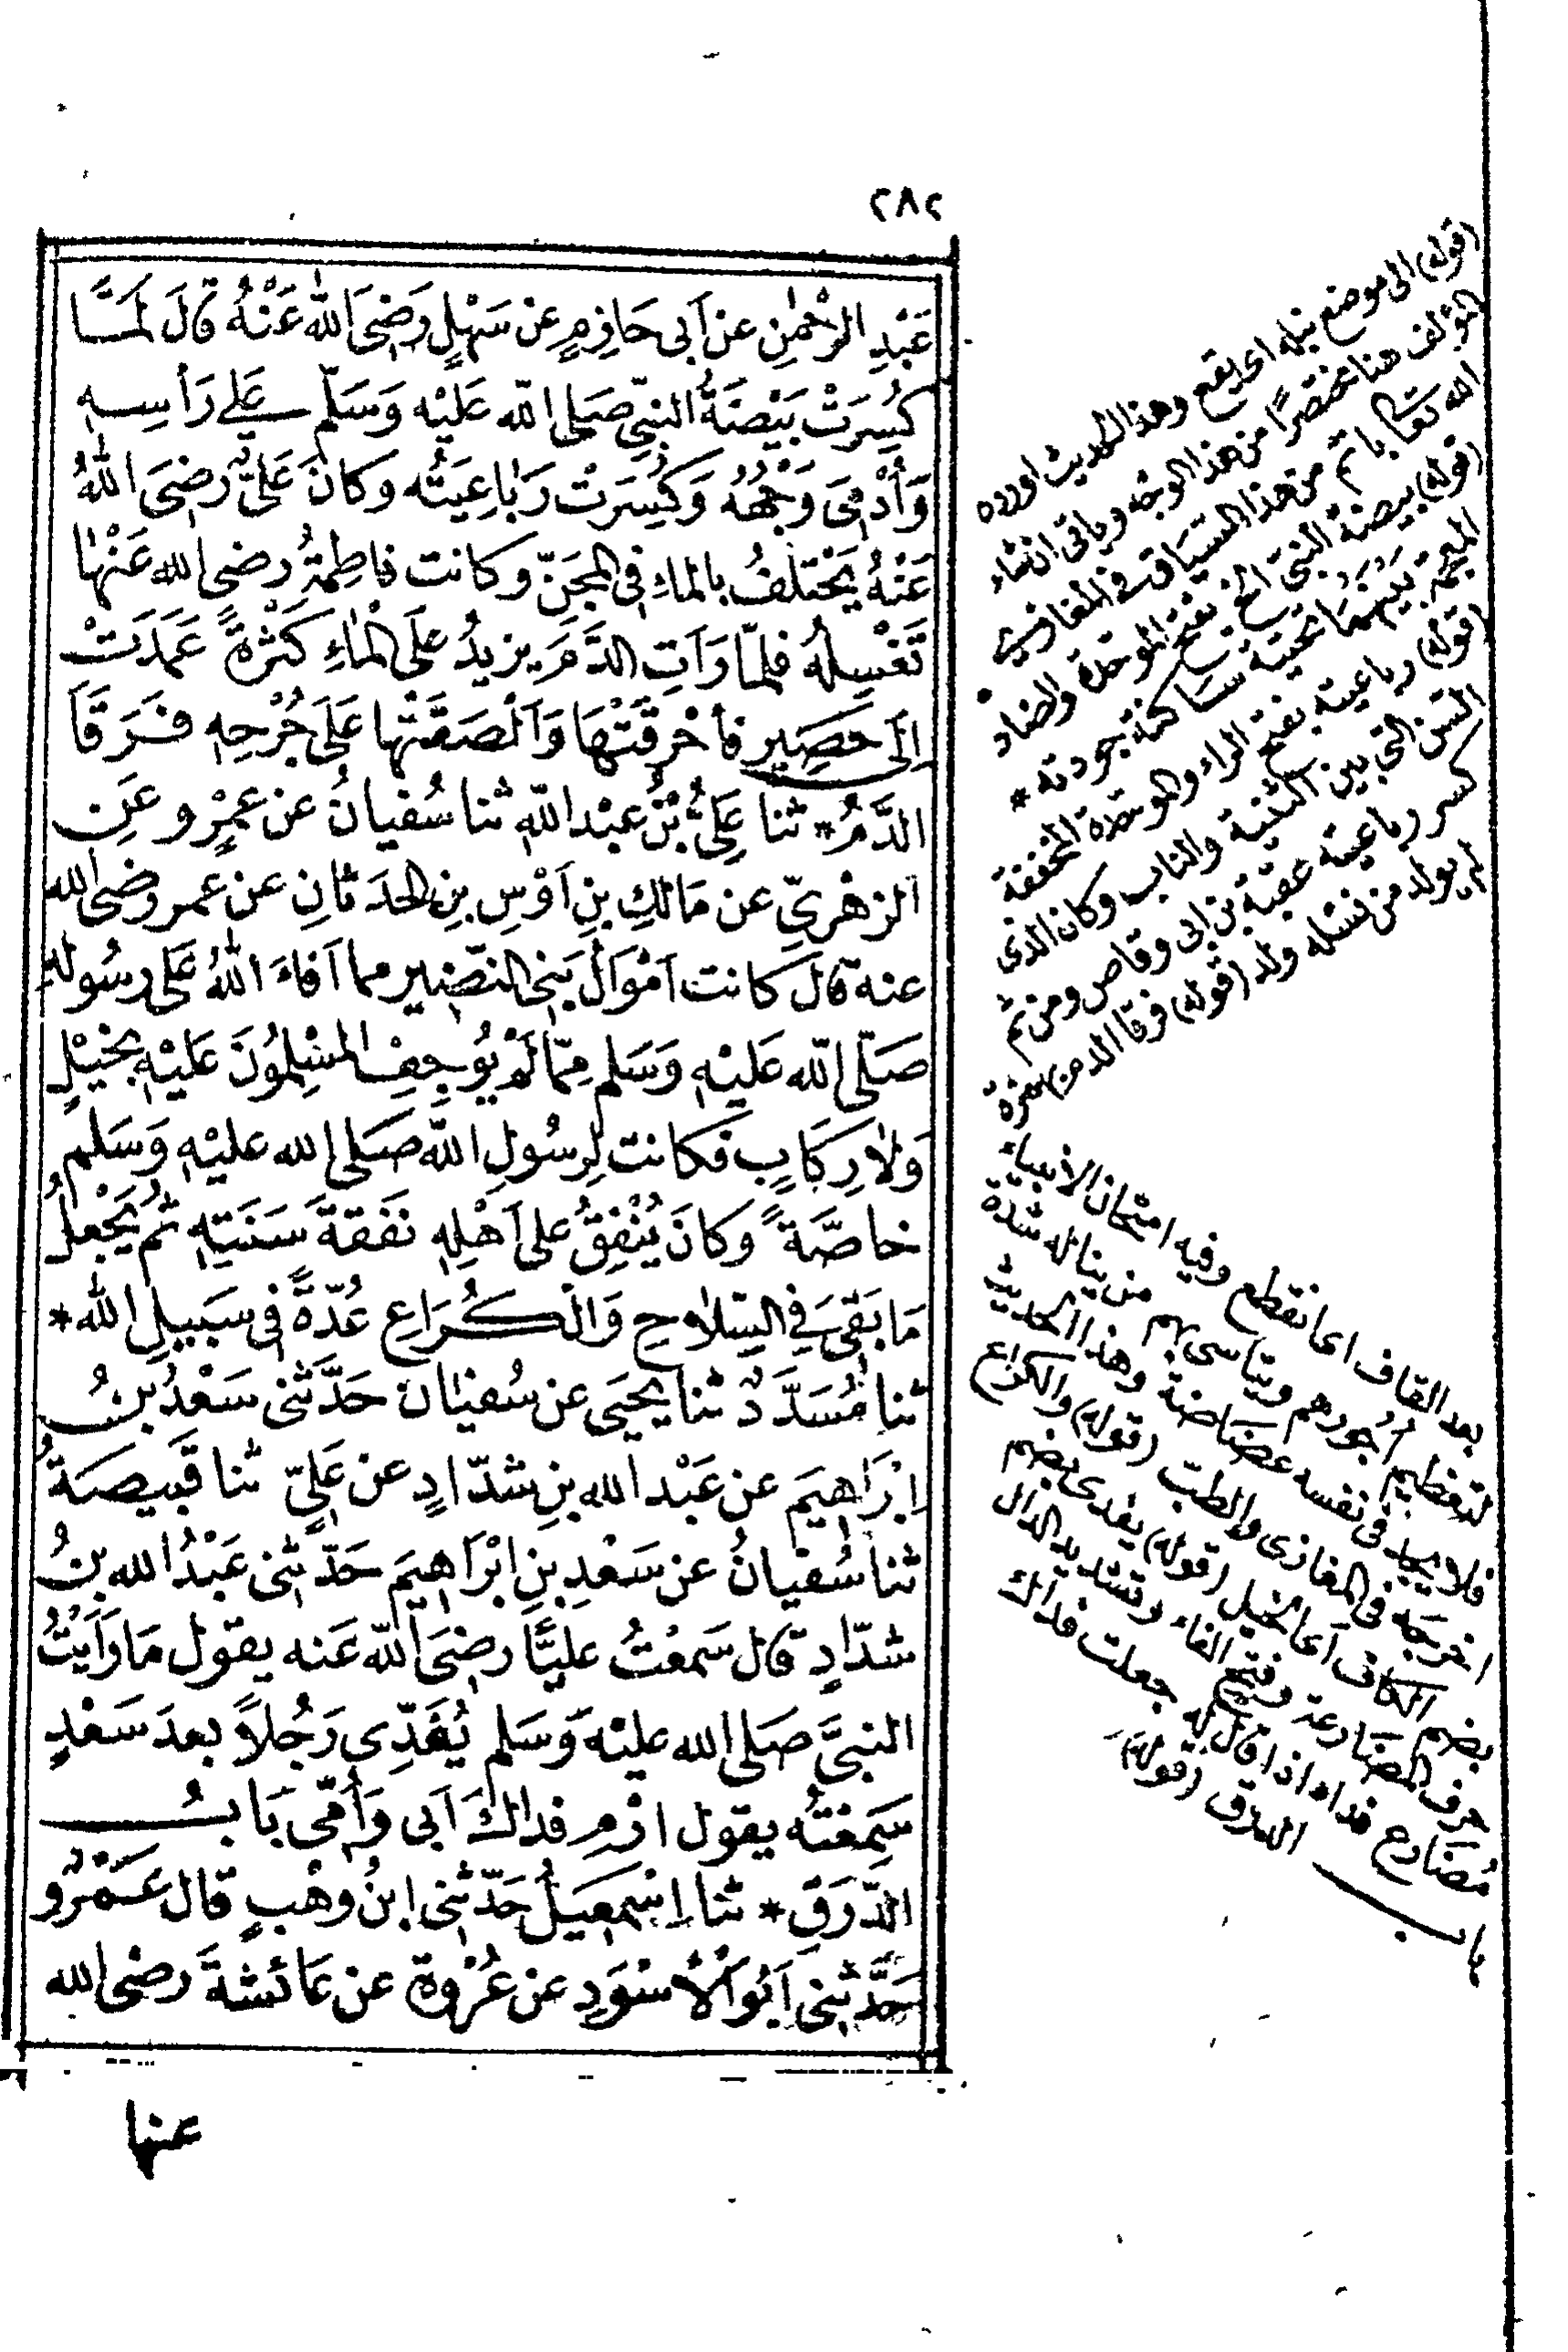 ٢٨٢
عَبْدِ الرَّحْمٰنِ عن اَبى حَازِمٍ عن سَهْلٍ رَضِىَ اللهُ عَنْهُ قَالَ لَمَّا
كُسِرَتْ بَيْضَةُ النبىِّ صَلى الله عَليْه وَسَلَّم على رَأسِهِ
وَأُدْمِىَ وَجْهُهُ وَكُسِرَتْ رَبَاعِيَتُه وَكانَ عَلىٌّ رضىَ اللهُ
عَنْهُ يَخْتلفُ بالماءِ فى المِجَنِّ وكانت فاطِمَةُ رضى الله عَنْها
تَغْسِلُهُ فلمّا رَأتِ الدَّمَ يزيدُ عَلَى الْماءِ كَثْرَةً عَمَدَتْ
اِلَى حَصِيرٍ فأحْرقَتْهَا وَاَلْصَقَتْها عَلَى جُرْحِهِ فَرَقَأَ
الدَّمُ * ثنا عَلِىُّ بْنُ عبْد اللهِ ثنا سُفيانُ عن عمْرٍو عَنِ
الزهْرىِّ عن مَالكِ بنِ اَوْسِ بنِ الحَدَثانِ عن عمر رضى الله
عنه قال كانت اَمْوَالُ بَنى النضيرِ مما اَفاءَ اللهُ عَلى رسُولِهِ
صَلّى الله عَليْهِ وَسَلم مِمّا لَمْ يُوجِفِ المسْلِمُونَ عَليْهِ بخيْلٍ
وَلا رِكَابٍ فكانت لِرسُولِ اللهِ صَلى الله عليْهِ وَسَلم
خاصَّةً وَكانَ يُنْفِقُ على اَهْلِهِ نَفَقةَ سَنَتِهِ ثم يَجْعلُ
مَا بَقىَ فى السِّلاحِ وَالْكُرَاعِ عُدّةً فى سَبيلِ الله *
ثنا مُسَدَّدٌ ثنا يحْيَى عن سُفيَان حَدَّثنى سَعْدُ بنُ
اِبْرَاهِيمَ عن عَبْد الله بنِ شدّادٍ عن عَلىٍّ ثنا قَبيصَةُ
ثنا سُفيَانُ عن سَعْدِ بنِ اِبْرَاهِيمَ حَدّثنى عَبْدُ الله بنُ
شدّادٍ قال سَمعْتُ عليًّا رضىَ اللهُ عَنه يقول مَا رَاَيْتُ
النبىَّ صَلى الله عليْهِ وَسَلم يُفَدِّى رَجُلاً بعدَ سَعْدٍ
سَمِعْتُه يقول ارْمِ فداكَ اَبى وَأُمّى بَابُ
الدّرَقِ * ثنا اِسْمعيلُ حَدّثنى ابنُ وهْبٍ قال عَمْرٌو
حَدَّثنى اَبُو الْأسْوَدِ عن عُرْوة عن عَائشةَ رضى الله
عنها
(قوله) الى موضع نبله اى يقع وهذا الحديث اورده
المؤلف هنا مختصرًا من هذا الوجه وياتى انشاء
الله تعا باتم من هذا السّياق فى المغازى
(قوله) بيضة النبى الخ بفتح الموحدة والضاد
المعجمة بينهما تحتية ساكنة خودته *
(قوله) رباعيته بفتح الراء والموحدة المخففة
السّن التى بين الثنية والناب وكان الذى
كسر رباعيته عتبة بن ابى وقاص ومن ثم
لم يولد من نسله ولد (قوله) فرقا الدم بهمزة
بعد القاف اى انقطع وفيه امتحان الانبياء
لتعظيم اُجورهم ويتاسى بهم من يناله شدة
فلا يجد فى نفسه غضاضة وهذا الحديث
اخرجه فى المغازى والطب (قوله) والكراع
بضم الكاف اى الخيل (قوله) يفدى بضم
حرف المضارعة وفتح الفاء وتشديد الدال
مُضارع فداه اذا قال له جعلت فداك
باب الدرق (قوله)